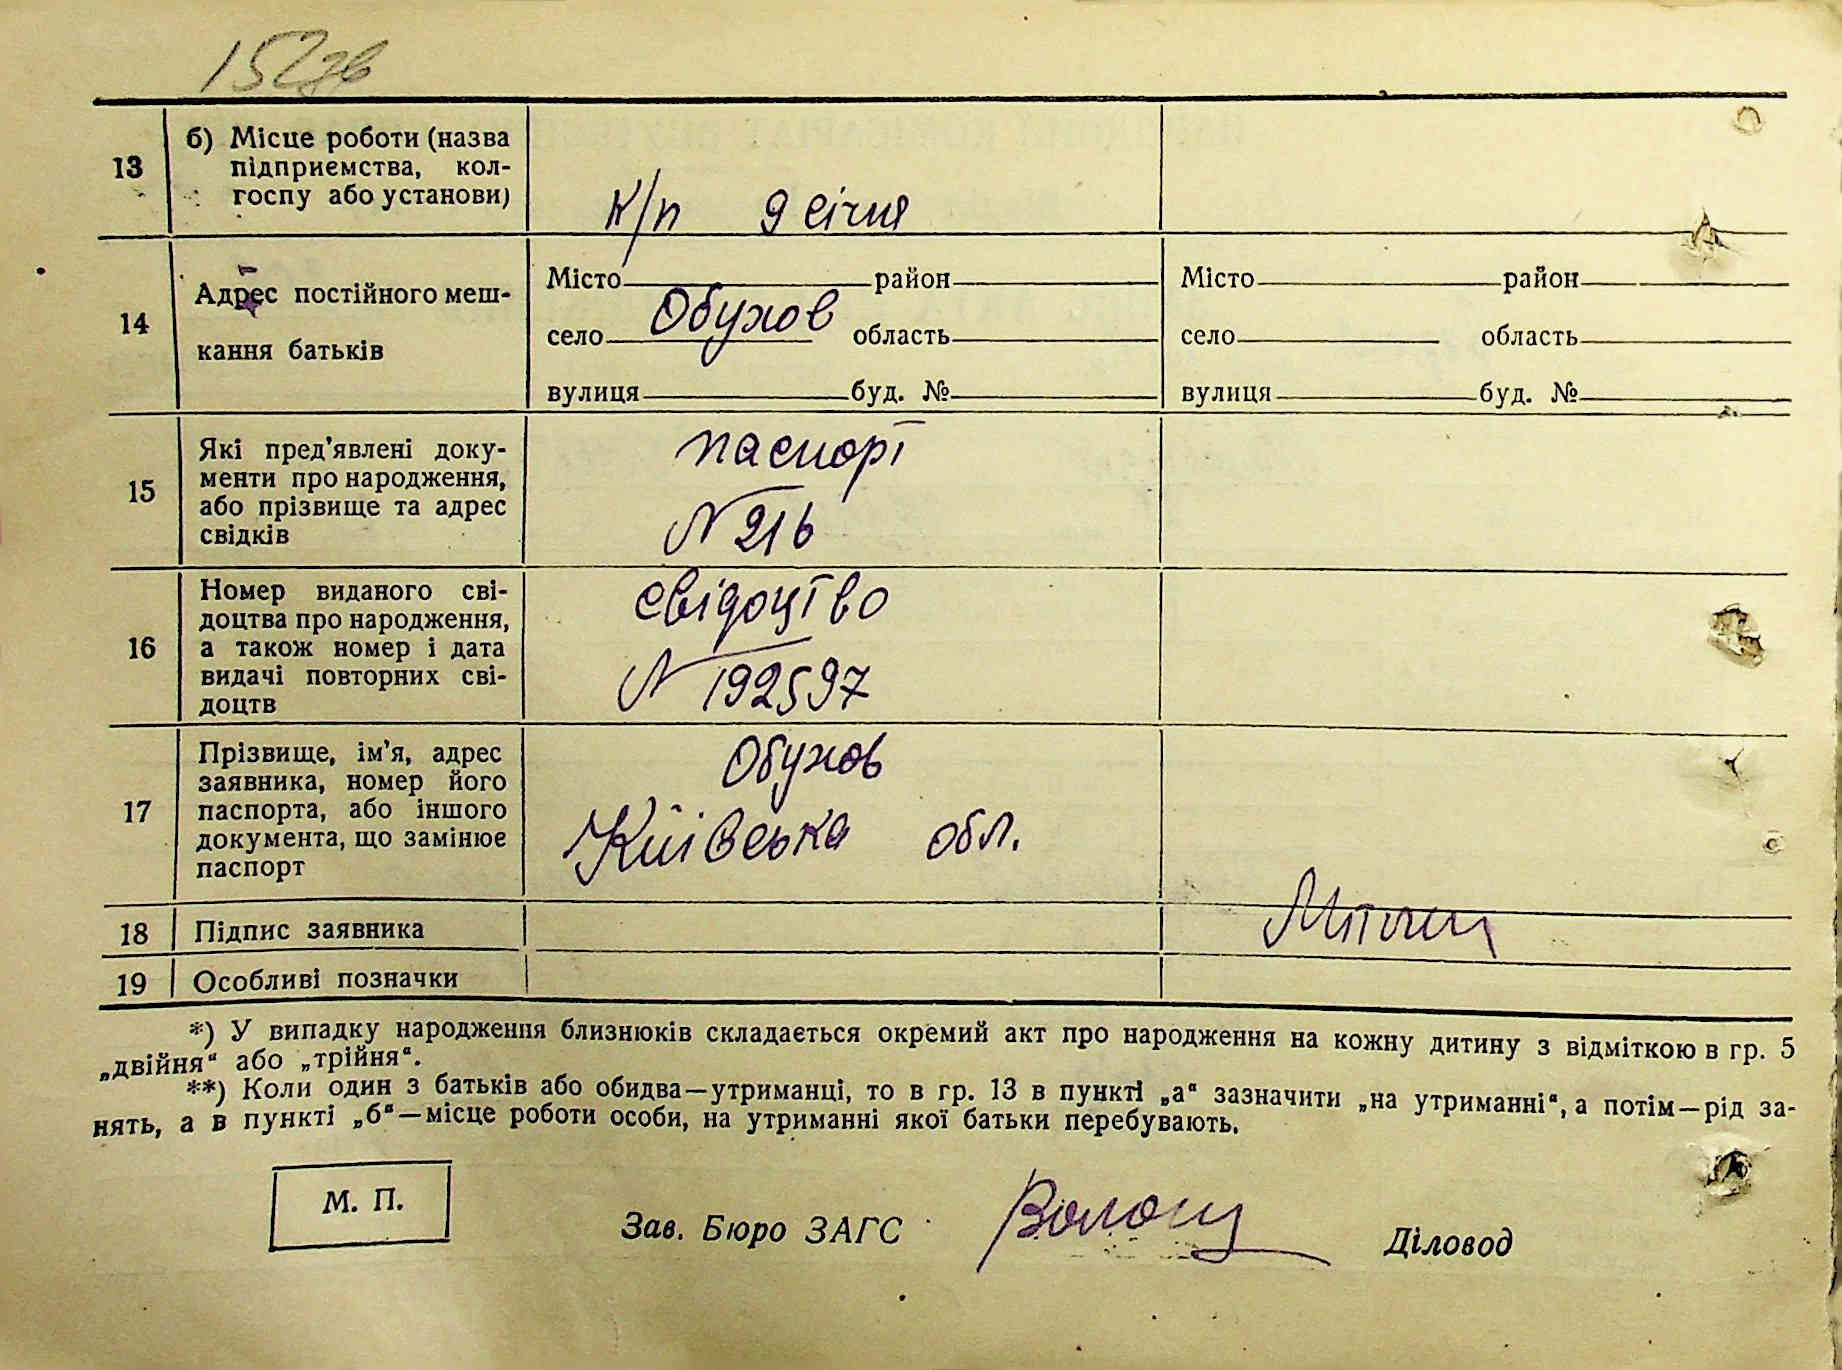 152зв
13
б) Місце роботи (назва
підприємства, кол-
госпу або установи)
к/п 9 січня
14
Адрес постійного меш-
кання батьків
Місто район
село Обухов область
вулиця буд. №
Місто район
село область
вулиця буд. №
15
Які пред'явлені доку-
менти про народження,
або прізвище та адрес
свідків
паспорт
N 216
16
Номер виданого сві-
доцтва про народження,
а також номер і дата
видачі повторних сві-
доцтв
свідоцтво
N 192597
17
Прізвище, ім'я, адрес
заявника, номер його
паспорта, або іншого
документа, що замінює
паспорт
Обухов
Київська обл.
18
Підпис заявника
19
Особливі позначки
*) У випадку народження близнюків складається окремий акт про народження на кожну дитину з відміткою в гр. 5
„двійня“ або „трійня“.
**) Коли один з батьків або обидва—утриманці, то в гр. 13 в пункті „а“ зазначити „на утриманні“, а потім—рід за-
нять, а в пункті „б“—місце роботи особи, на утриманні якої батьки перебувають.
М. П.
Зав. Бюро ЗАГС
Діловод